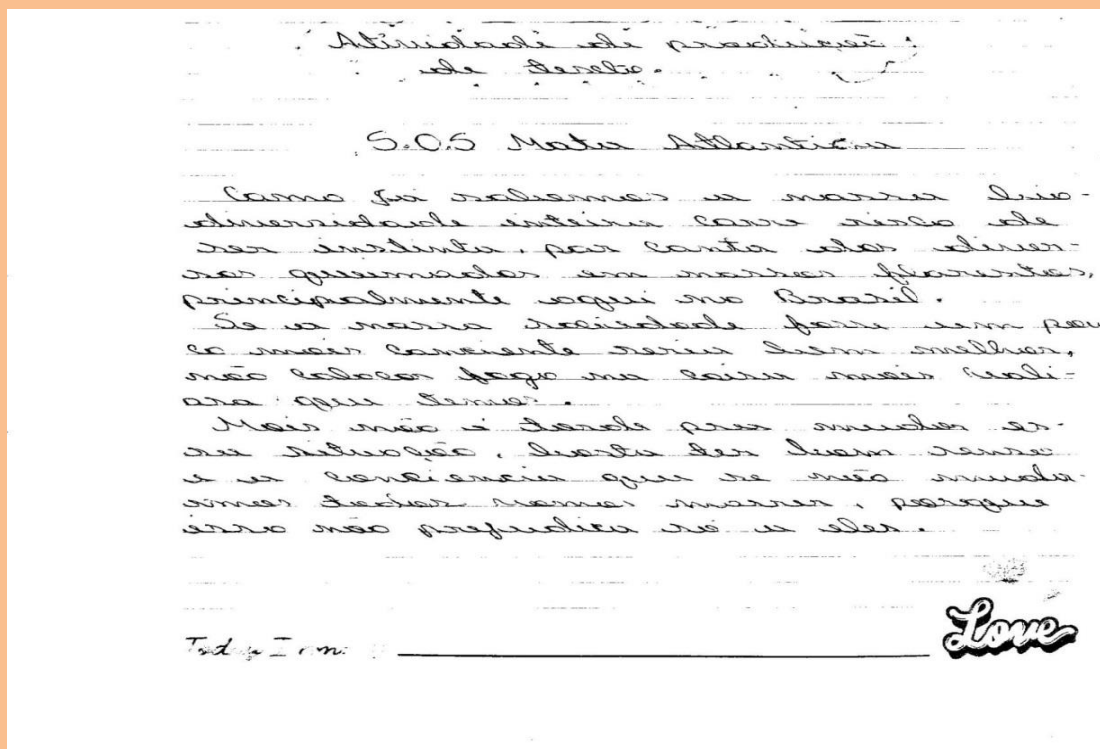 Atividade de produição
de texto.
S.O.S Mata Atlantica
Como já sabemos a nossa bio-
diversidade inteira corre risco de
ser instinta, por conta das diver-
sas queimadas em nossas florestas,
principalmente aqui no Brasil.
Se a nossa sociedade fosse um pou
co mais conciente seria bem melhor,
não colocar fogo na coisa mais vali-
osa que temos.
Mais não é tarde pra mudar es-
sa situação, basta ter bom senso
e a conciencia que se não muda-
rmos todos vamos morrer, porque
isso não prejudica só a eles.
Today I am:
Love